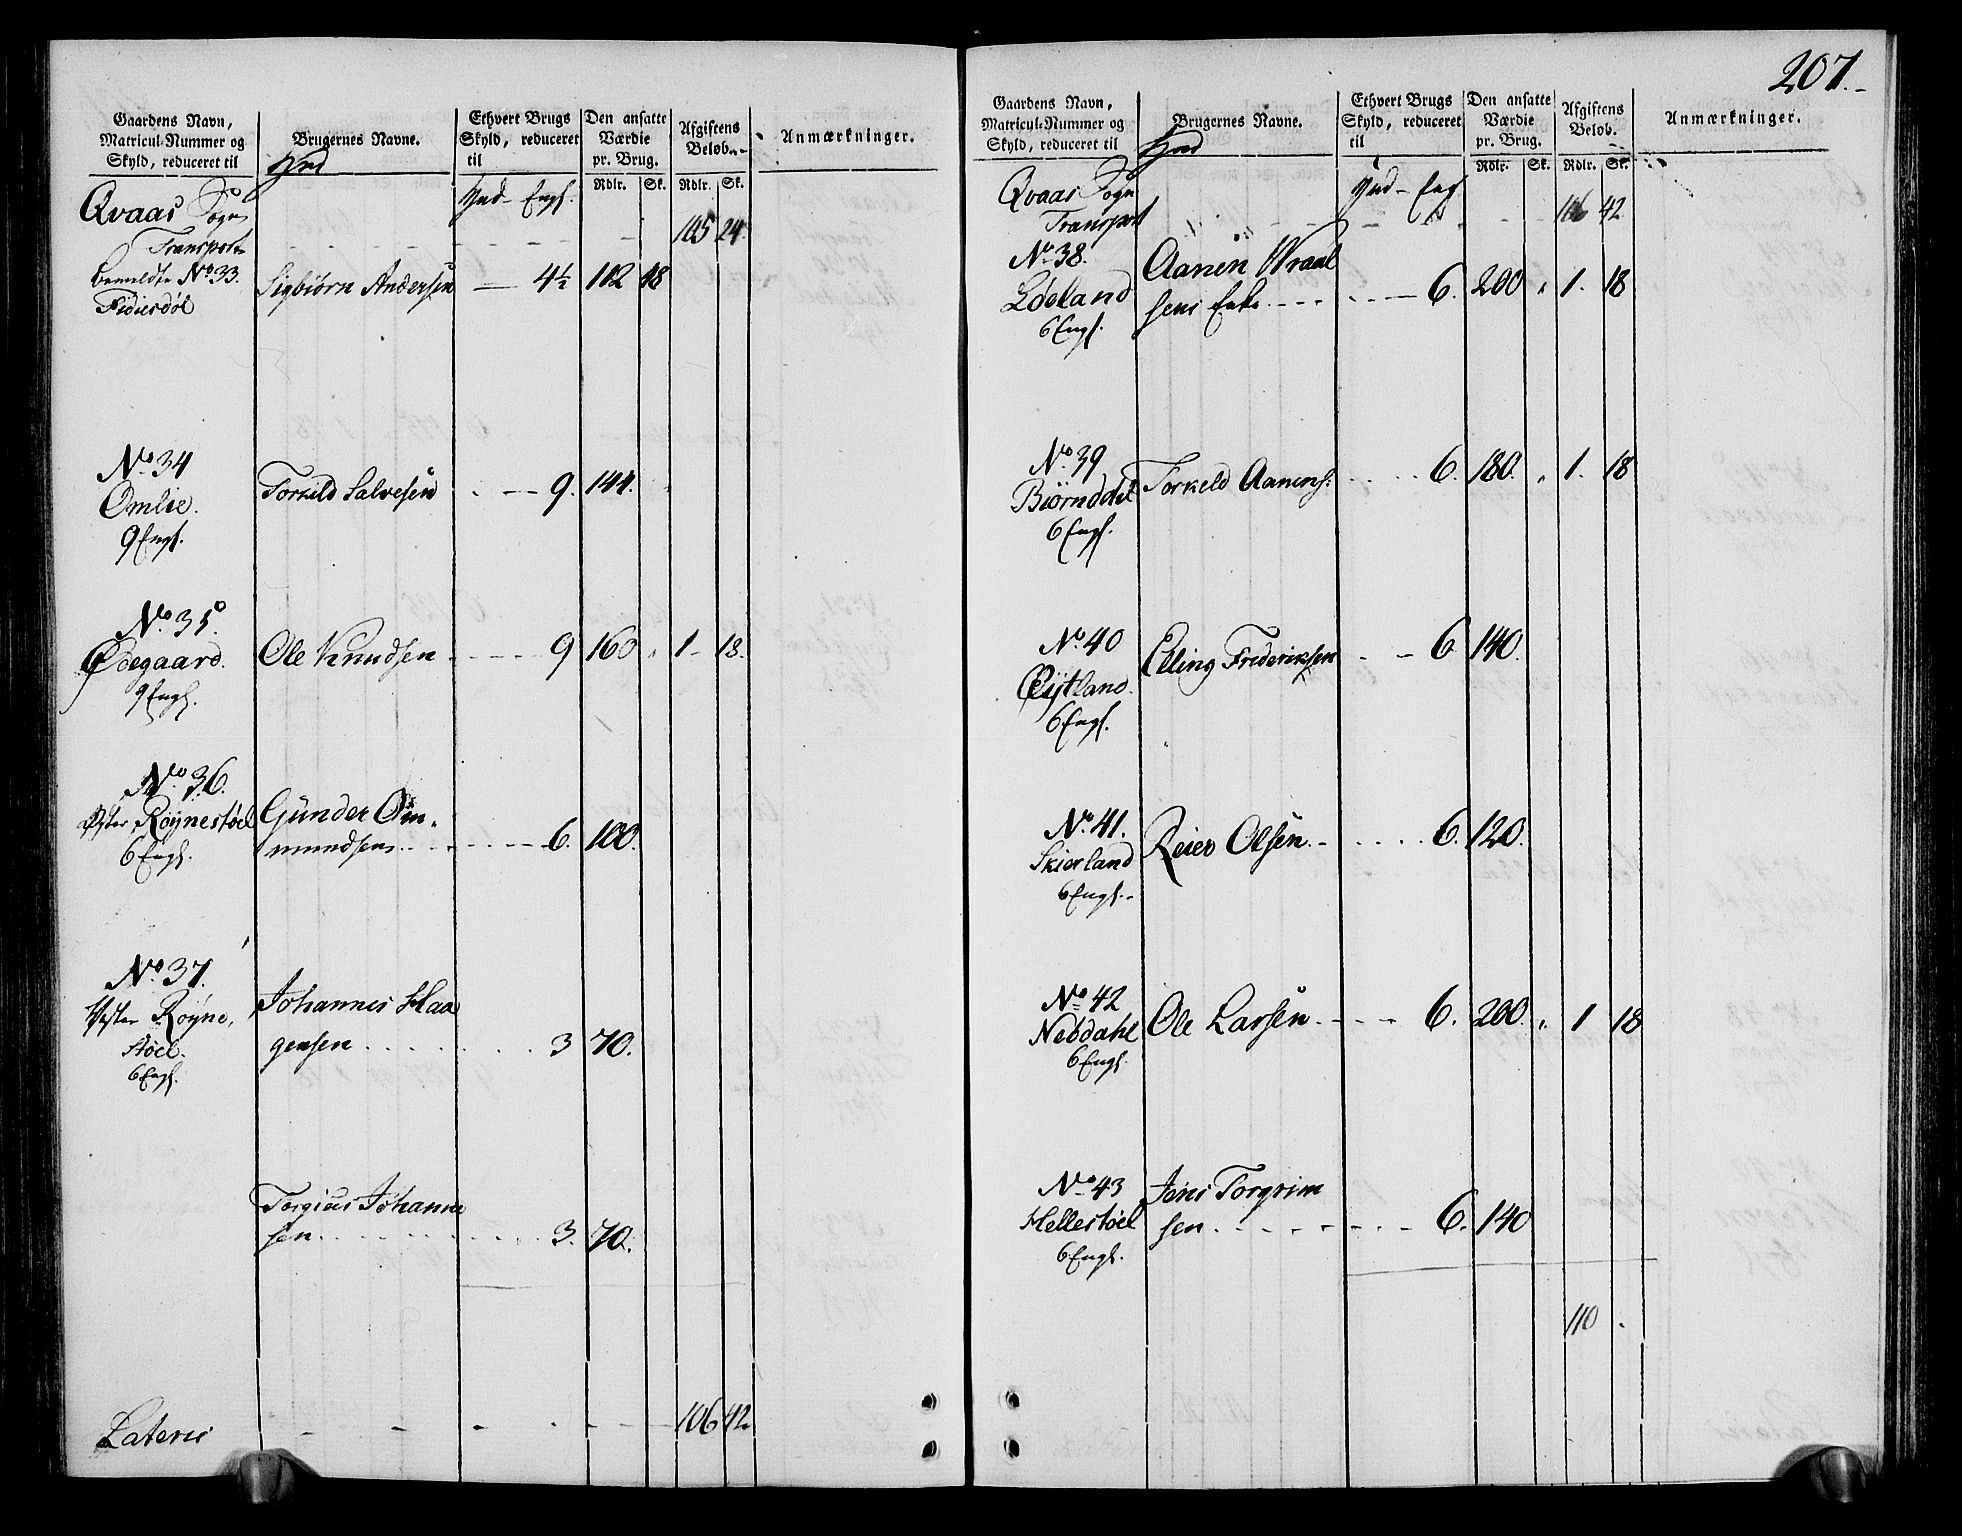 207.
Gaardens Navn, Matricul-Nummer og Skyld, reduceret til
Brugernes Navne.
Ethvert Brugs Skyld, reduceret til
Den ansatte Værdie pr. Brug.
Afgiftens Beløb.
Anmærkninger.
Hud
Rdlr. Sk. Rdlr. Sk.
Qvaas Sogn Hud - Engl.
Transport - - - - 105 24.
bemeldte No. 33. Sigbiørn Andersen — 4½ 112 48
Fidiesdøl
No. 34
Omlie. Torkild Salvesen - - - 9. 144.
9 Engl.
No. 35.
Ødegaard. Ole Knudsen - - - - 9 160 " 1 - 18.
9 Engl.
No. 36.
Øster Røynestøel Gunder Om-
6 Engl. mundsen - - - - 6. 100.
No. 37.
Vester Røyne, Johannes Haa
støel. gensen . . . . . 3 70.
6 Engl.
Torgius Johanne
sen . . . . . . 3. 70.
Lateris - - - - - 106 42.
Gaardens Navn, Matricul-Nummer og Skyld, reduceret til
Brugernes Navne.
Ethvert Brugs Skyld, reduceret til
Den ansatte Værdie pr. Brug.
Afgiftens Beløb.
Anmærkninger.
Hud
Rdlr. Sk. Rdlr. Sk.
Qvaas Sogn Hud - Engl
Transport - - - - 106 42
No. 38. Aanen Wraal
Ldeland sens Enke - - - - 6. 200 " 1. 18
6 Engl.
No. 39
Biørnddal Torkeld Aanens. . . . . 6. 180. " 1. 18
6 Engl.
No. 40
Elling Frideriksen - - 6 140.
6 Engl.
No. 41.
Skierland Reier Olsen. - . . . . 6. 120.
6 Engl.
No. 42
Nebdahl Ole Larsen - - - - 6. 200. " 1 18
6 Engl.
No. 43 Jens Torgrim
Hellestøel sen - - - - - 6. 140
6 Engl.
110 .